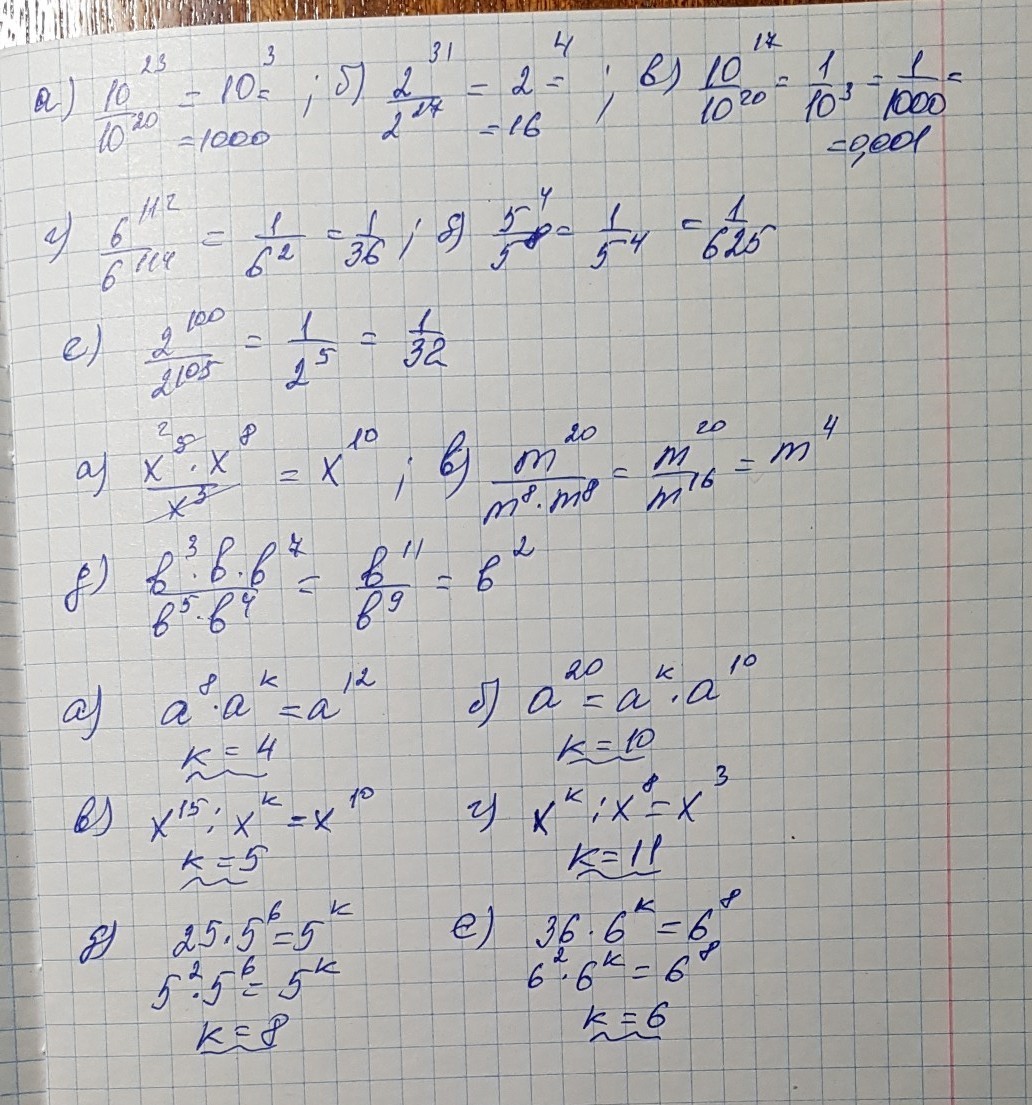 а) 10^23/10^20 = 10^3 = ; б) 2^31/2^27 = 2^4 = ; в) 10^17/10^20 = 1/10^3 = 1/1000 =
=1000 =16 =0,001
г) 6^112/6^114 = 1/6^2 = 1/36 ; д) 5^4/5^8 = 1/5^4 = 1/625
е) 2^100/2^105 = 1/2^5 = 1/32
а) x^5 · x^8/x^3 = x^10 ; в) m^20/m^8·m^8 = m^20/m^16 = m^4
д) b^3·b·b^7/b^5·b^4 = b^11/b^9 = b^2
а) a^8·a^k = a^12 б) a^20 = a^k·a^10
k = 4 k = 10
в) x^15 : x^k = x^10 г) x^k : x^8 = x^3
k = 5 k = 11
д) 25·5^6 = 5^k е) 36·6^k = 6^8
5^2·5^6 = 5^k 6^2·6^k = 6^8
k = 8 k = 6